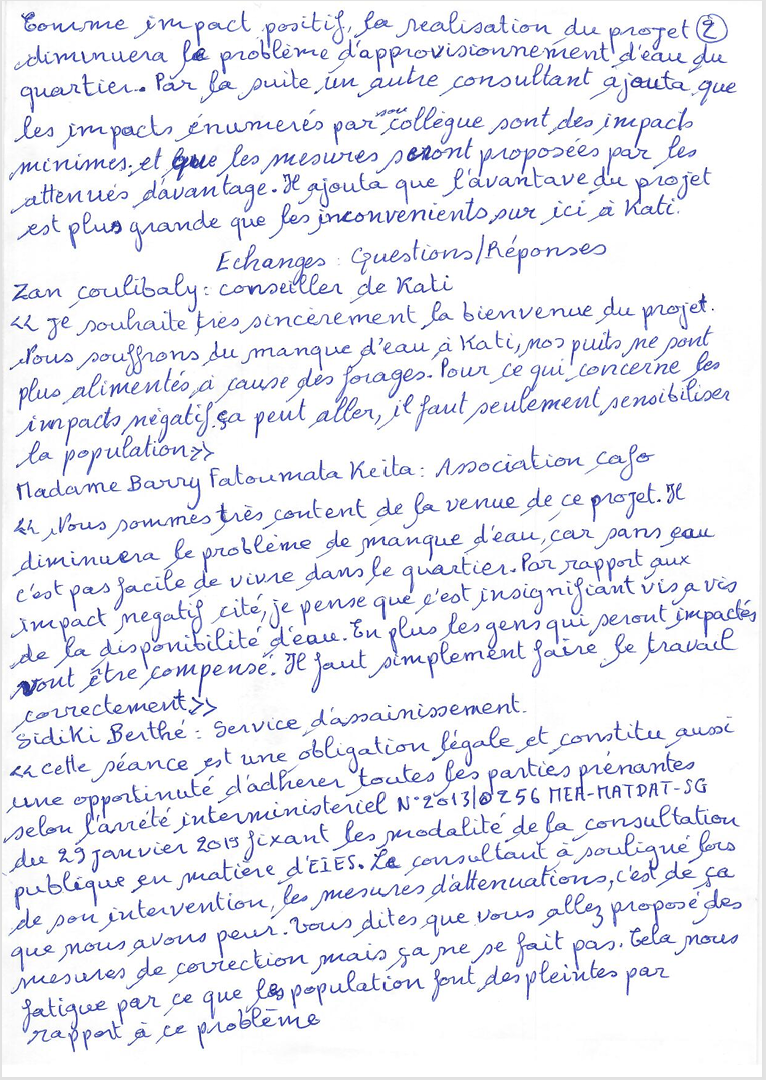 Comme impact positif, la realisation du projet (2)
diminuera le problème d'approvisionnement d'eau du
quartier. Par la suite un autre consultant ajouta que
les impacts énumerés par son collègue sont des impacts
minimes et que les mesures seront proposées par les
attenués davantage. Il ajouta que l'avantave du projet
est plus grande que les inconvenients sur ici à Kati.
Echanges : Questions/Réponses
Zan coulibaly : conseiller de Kati
<< Je souhaite très sincèrement la bienvenue du projet.
Nous souffrons du manque d'eau à Kati, nos puits ne sont
plus alimentés à cause des forages. Pour ce qui concerne les
impacts négatif ça peut aller, il faut seulement sensibiliser
la population >>
Madame Barry Fatoumata Keita : Association cafo
<< Nous sommes très content de la venue de ce projet. Il
diminuera le problème de manque d'eau, car sans eau
c'est pas facile de vivre dans le quartier. Par rapport aux
impact negatif cité, je pense que c'est insignifiant vis a vis
de la disponibilité d'eau. En plus les gens qui seront impactés
vont être compensé. Il faut simplement faire le travail
correctement >>
Sidiki Berthé : Service d'assainissement.
<< cette séance est une obligation légale et constitu aussi
une opportinuté d'adherer toutes les parties prénantes
selon l'arrété interministeriel N°2013/0256 MEA-MATDAT-SG
du 29 janvier 2013 fixant les modalité de la consultation
publique en matière d'EIES. Le consultant à souligné lors
de son intervention, les mesures d'attenuations, c'est de ça
que nous avons peur. Vous dites que vous allez proposé des
mesures de correction mais ça ne se fait pas. Cela nous
fatigue par ce que les population font des pleintes par
rapport à ce problème